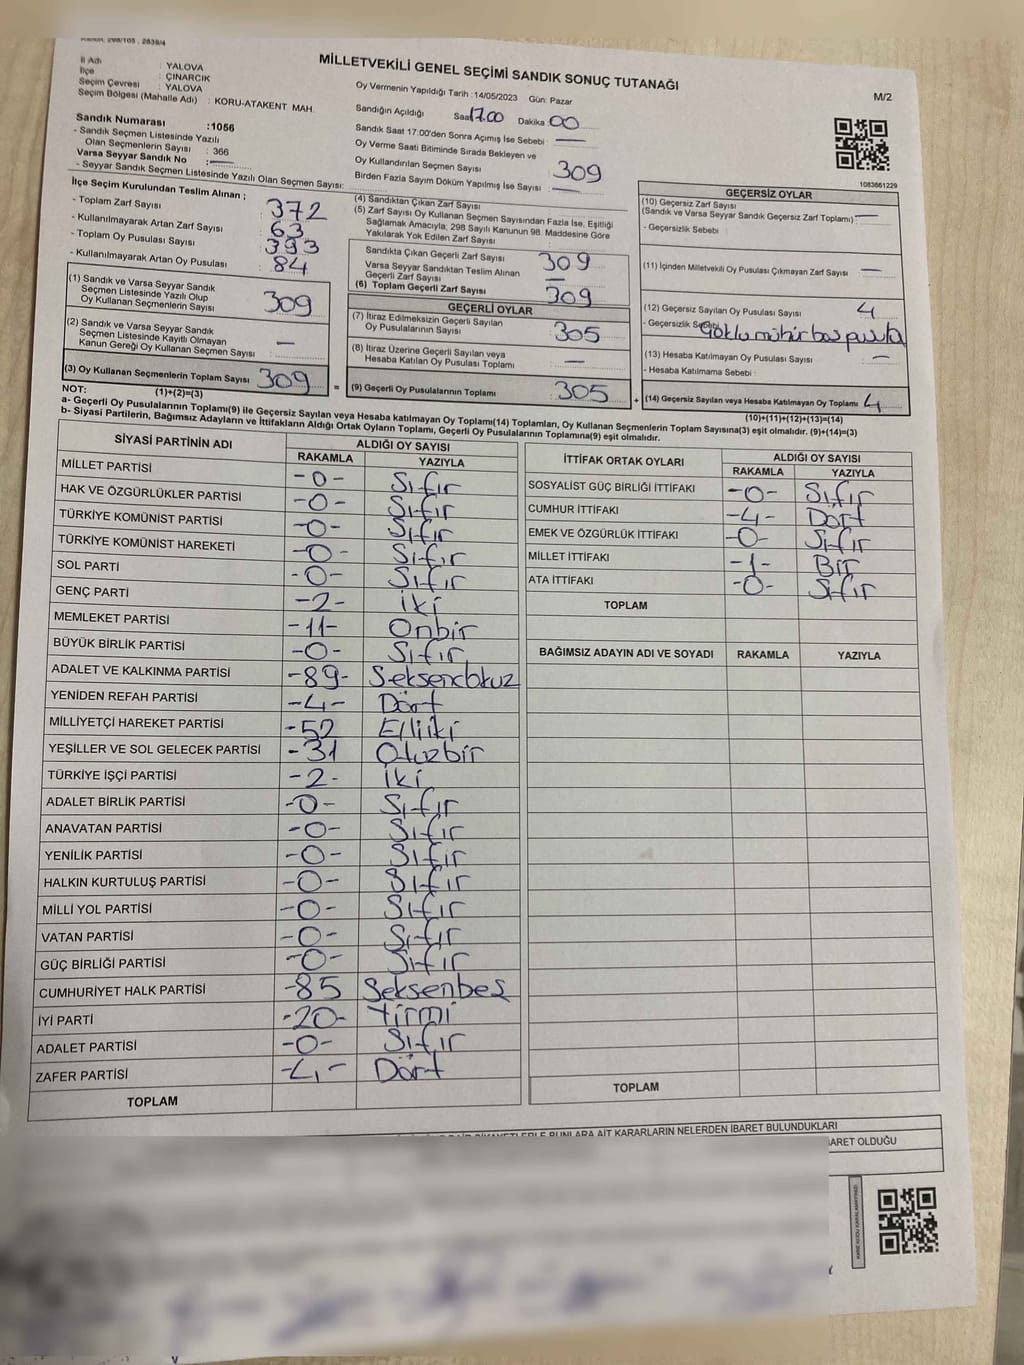 MİLLETVEKİLİ GENEL SEÇİMİ SANDIK SONUÇ TUTANAĞI
M/2
İl Adı : YALOVA
İlçe : ÇINARCIK
Seçim Çevresi : YALOVA
Seçim Bölgesi (Mahalle Adı) : KORU-ATAKENT MAH.
Sandık Numarası :1056
- Sandık Seçmen Listesinde Yazılı
Olan Seçmenlerin Sayısı : 366
Varsa Seyyar Sandık No : —
- Seyyar Sandık Seçmen Listesinde Yazılı Olan Seçmen Sayısı:
Oy Vermenin Yapıldığı Tarih :14/05/2023 Gün: Pazar
Sandığın Açıldığı Saat 17.00 Dakika 00
Sandık Saat 17:00'den Sonra Açılmış İse Sebebi : —
Oy Verme Saati Bitiminde Sırada Bekleyen ve
Oy Kullandırılan Seçmen Sayısı 309
Birden Fazla Sayım Döküm Yapılmış İse Sayısı : —
1083661229
İlçe Seçim Kurulundan Teslim Alınan ;
- Toplam Zarf Sayısı : 372
- Kullanılmayarak Artan Zarf Sayısı : 63
- Toplam Oy Pusulası Sayısı : 393
- Kullanılmayarak Artan Oy Pusulası : 84
(1) Sandık ve Varsa Seyyar Sandık
Seçmen Listesinde Yazılı Olup
Oy Kullanan Seçmenlerin Sayısı : 309
(2) Sandık ve Varsa Seyyar Sandık
Seçmen Listesinde Kayıtlı Olmayan
Kanun Gereği Oy Kullanan Seçmen Sayısı : —
(3) Oy Kullanan Seçmenlerin Toplam Sayısı 309
(1)+(2)=(3)
(4) Sandıktan Çıkan Zarf Sayısı
(5) Zarf Sayısı Oy Kullanan Seçmen Sayısından Fazla İse, Eşitliği
Sağlamak Amacıyla; 298 Sayılı Kanunun 98. Maddesine Göre
Yakılarak Yok Edilen Zarf Sayısı :
Sandıkta Çıkan Geçerli Zarf Sayısı 309
Varsa Seyyar Sandıktan Teslim Alınan
Geçerli Zarf Sayısı —
(6) Toplam Geçerli Zarf Sayısı 309
GEÇERLİ OYLAR
(7) İtiraz Edilmeksizin Geçerli Sayılan
Oy Pusulalarının Sayısı 305
(8) İtiraz Üzerine Geçerli Sayılan veya
Hesaba Katılan Oy Pusulası Toplamı —
= (9) Geçerli Oy Pusulalarının Toplamı 305
GEÇERSİZ OYLAR
(10) Geçersiz Zarf Sayısı
(Sandık ve Varsa Seyyar Sandık Geçersiz Zarf Toplamı) : —
- Geçersizlik Sebebi :
(11) İçinden Milletvekili Oy Pusulası Çıkmayan Zarf Sayısı : —
(12) Geçersiz Sayılan Oy Pusulası Sayısı : 4
- Geçersizlik Sebebi Çoklu mühür boş pusula
(13) Hesaba Katılmayan Oy Pusulası Sayısı : —
- Hesaba Katılmama Sebebi :
+ (14) Geçersiz Sayılan veya Hesaba Katılmayan Oy Toplamı 4
(10)+(11)+(12)+(13)=(14)
NOT:
a- Geçerli Oy Pusulalarının Toplamı(9) ile Geçersiz Sayılan veya Hesaba katılmayan Oy Toplamı(14) Toplamları, Oy Kullanan Seçmenlerin Toplam Sayısına(3) eşit olmalıdır. (9)+(14)=(3)
b- Siyasi Partilerin, Bağımsız Adayların ve İttifakların Aldığı Ortak Oyların Toplamı, Geçerli Oy Pusulalarının Toplamına(9) eşit olmalıdır.
SİYASİ PARTİNİN ADI ALDIĞI OY SAYISI
RAKAMLA YAZIYLA
MİLLET PARTİSİ -0- Sıfır
HAK VE ÖZGÜRLÜKLER PARTİSİ -0- Sıfır
TÜRKİYE KOMÜNİST PARTİSİ -0- Sıfır
TÜRKİYE KOMÜNİST HAREKETİ -0- Sıfır
SOL PARTİ -0- Sıfır
GENÇ PARTİ -2- İki
MEMLEKET PARTİSİ -11- Onbir
BÜYÜK BİRLİK PARTİSİ -0- Sıfır
ADALET VE KALKINMA PARTİSİ -89- Seksendokuz
YENİDEN REFAH PARTİSİ -4- Dört
MİLLİYETÇİ HAREKET PARTİSİ -52 Elliiki
YEŞİLLER VE SOL GELECEK PARTİSİ -31 Otuzbir
TÜRKİYE İŞÇİ PARTİSİ -2- İki
ADALET BİRLİK PARTİSİ -0- Sıfır
ANAVATAN PARTİSİ -0- Sıfır
YENİLİK PARTİSİ -0- Sıfır
HALKIN KURTULUŞ PARTİSİ -0- Sıfır
MİLLİ YOL PARTİSİ -0- Sıfır
VATAN PARTİSİ -0- Sıfır
GÜÇ BİRLİĞİ PARTİSİ -0- Sıfır
CUMHURİYET HALK PARTİSİ -85 Seksenbeş
İYİ PARTİ -20- Yirmi
ADALET PARTİSİ -0- Sıfır
ZAFER PARTİSİ -4- Dört
TOPLAM
İTTİFAK ORTAK OYLARI ALDIĞI OY SAYISI
RAKAMLA YAZIYLA
SOSYALİST GÜÇ BİRLİĞİ İTTİFAKI -0- Sıfır
CUMHUR İTTİFAKI -4- Dört
EMEK VE ÖZGÜRLÜK İTTİFAKI -0- Sıfır
MİLLET İTTİFAKI -1- Bir
ATA İTTİFAKI -0- Sıfır
TOPLAM
BAĞIMSIZ ADAYIN ADI VE SOYADI RAKAMLA YAZIYLA
TOPLAM
BUNLARA AİT KARARLARIN NELERDEN İBARET BULUNDUKLARI
OLDUĞU